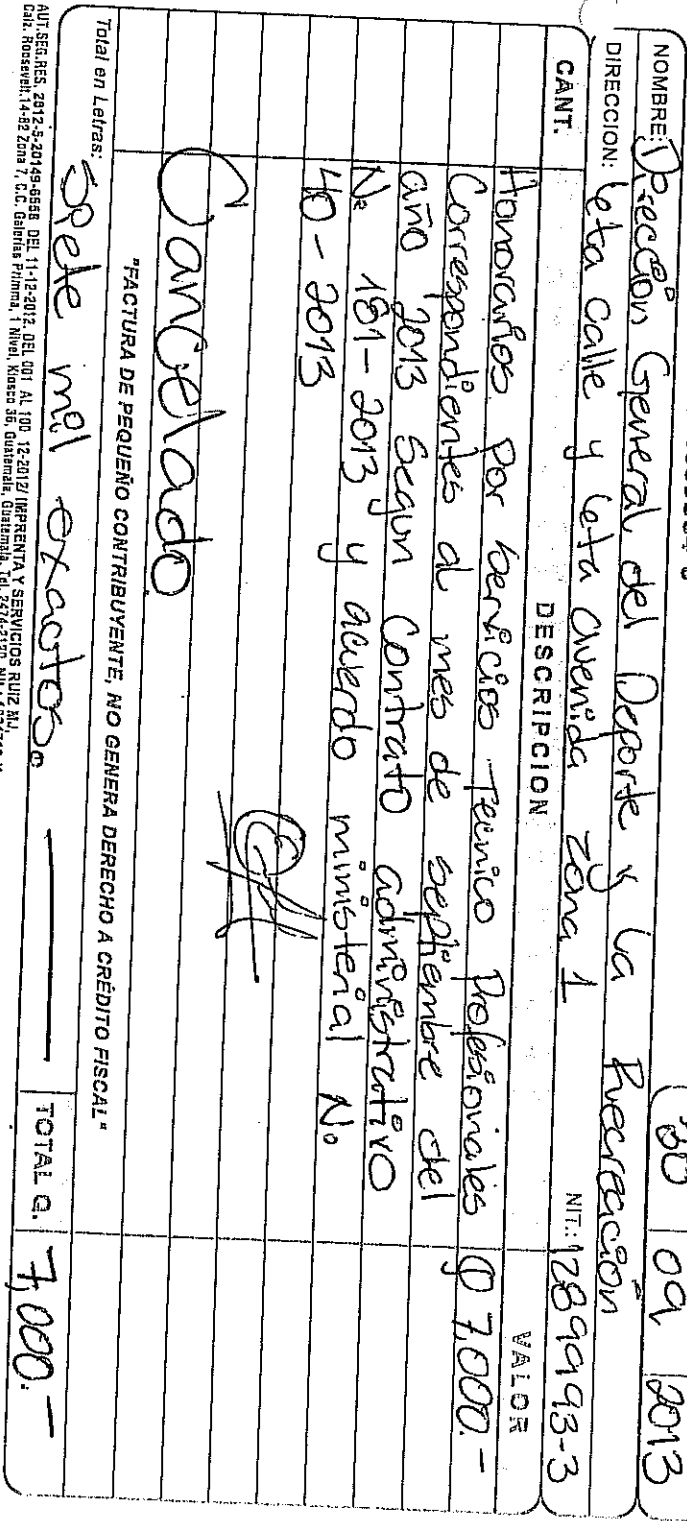 30 09 2013
NOMBRE: Dirección General del Deporte y la Recreación
DIRECCION: 6ta calle y 6ta avenida zona 1 NIT.: 12899993-3
CANT. DESCRIPCION VALOR
Honorarios Por Servicios Tecnico Profesionales Q 7,000.-
Correspondientes al mes de septiembre del
año 2013 Segun Contrato administrativo
No 181-2013 y acuerdo ministerial No.
40-2013
Cancelado
"FACTURA DE PEQUEÑO CONTRIBUYENTE, NO GENERA DERECHO A CRÉDITO FISCAL"
Total en Letras: Siete mil exactos. TOTAL Q. 7,000.-
AUT.SEG.RES. 2012-5-20149-6558 DEL 11-12-2012. DEL 001 AL 100 12-2012/ IMPRENTA Y SERVICIOS RUIZ MJ,
Calz. Roosevelt.14-82 Zona 7, C.C. Galerías Primma, 1 Nivel, Kiosco 36, Guatemala, Guatemala, Tel. 2474-2120